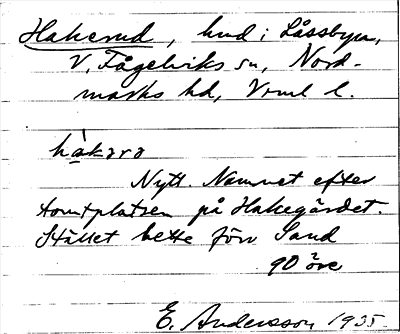 Hakerud, hmd i Låssbyn,
V. Fågelviks sn, Nord-
marks hd, Vrml l.
hàkərə
Nytt. Namnet efter
tomtplatsen på Hakegärdet.
Stället hette förr Sand
E. Andersson 1935.